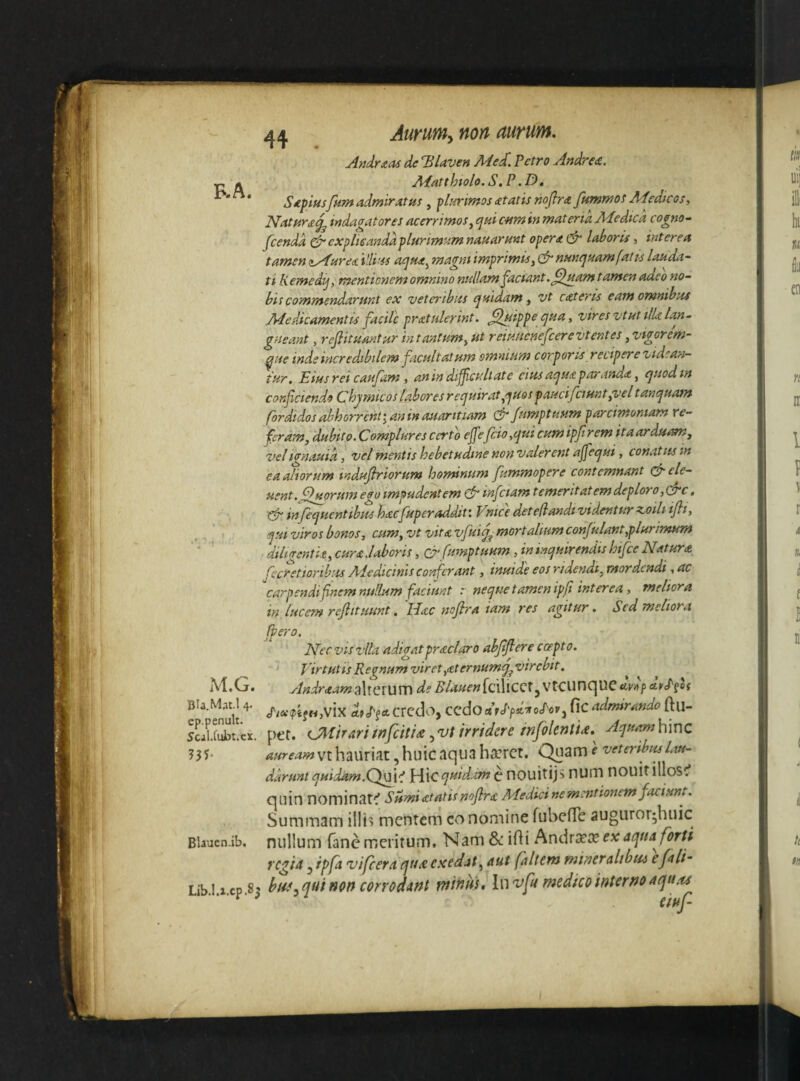 44 Aurum, non aurum.
Andræas de Blaven Med. Petro Andreæ.
R.A. Matthiolo. S. P. D.
Sæpius sum admiratus, plurimos ætatis nostræ summos Medicos,
Naturæq́ indagatores acerrimos, qui cum in materia Medica cogno-
scenda & explicanda plurimum nauarunt operæ & laboris, interea
tamen Aureæ illius aquæ, magni imprimis, & nunquam satis lauda-
ti Remedij, mentionem omnino nullam faciant. Quam tamen adeò no-
bis commendarunt ex veteribus quidam, vt cæteris eam omnibus
Medicamentis facilè prætulerint. Quippe qua, vires vtut illæ lan-
gueant, restituantur in tantum, ut reiuuenescere vtentes, vigorem-
que inde incredibilem facultatum omnium corporis recipere videan-
tur. Eius rei causam, an in difficultate eius aquæ parandæ, quod in
conficiendo Chymicos labores requirat, quos pauci sciunt, vel tanquam
sordidos abhorrent; an in auaritiam & sumptuum parcimoniam re-
feram, dubito. Complures certò esse scio, qui cum ipsi rem ita arduam,
vel ignauiâ, vel mentis hebetudine non valerent assequi, conatus in
ea aliorum industriorum hominum summopere contemnant & ele-
uent. Quorum ego impudentem & insciam temeritatem deploro, &c.
& in sequentibus hæc superaddit: Vnicè detestandi videntur zoili isti,
qui viros bonos, cum, vt vitæ vsuiq́ mortalium consulant, plurimum
diligentiæ, curæ, laboris, & sumptuum, in inquirendis hisce Naturæ
secretioribus Medicinis conferant, inuidè eos ridendi, mordendi, ac
carpendi finem nullum faciunt: neque tamen ipsi interea, meliora
in lucem restituunt. Hæc nostra iam res agitur. Sed meliora
spero.
Nec vis vlla adigat præclaro absistere cœpto.
Virtutis Regnum viret, æternumq́ virebit.
M.G. Andræam alterum de Blauen scilicet, vtcunque ἀνὴρ ἀνδρὸς
Bla. Mat. l 4. διαφέρει, vix ἄνδρα credo, cedo ἀνδράποδον, sic admirando stu-
ep. penult.
Scal. subt. ex. pet. Mirari inscitiæ, vt irridere insolentiæ. Aquam hinc
335. auream vt hauriat, huic aqua hæret. Quam è veteribus lau-
darunt quidam. Qui? Hic quidam è nouitijs num nouit illos?
quin nominat? Summi ætatis nostræ Medici ne mentionem faciunt.
Summam illis mentem eo nomine subesse auguror; huic
Blauen. ib. nullum sanè meritum. Nam & isti Andrææ ex aqua forti
regia, ipsa viscera quæ exedat, aut saltem mineralibus è sali-
Lib. 1. 2. ep. 83 bus, qui non corrodant minùs. In vsu medico interno aquas
eius-